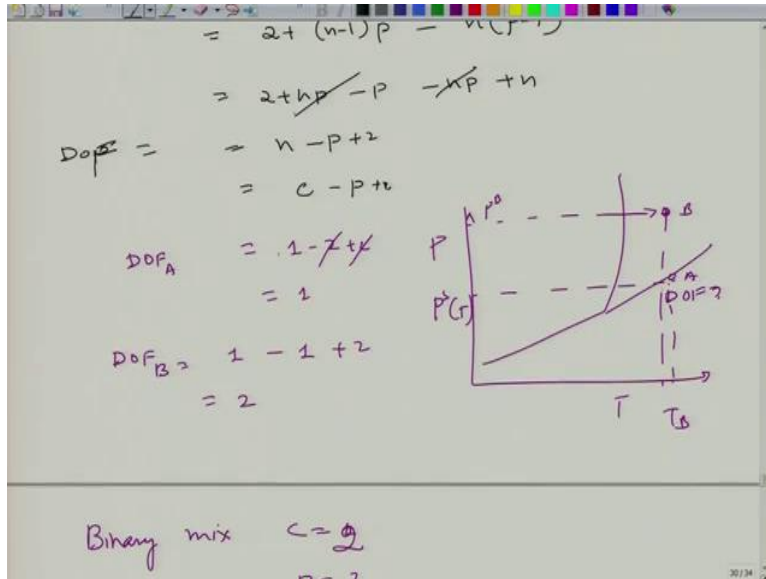 = 2+ (n-1) p - n(p-1)
= 2+np -p -np +n
DOF = = n -p+2
= c -p+2
DOF_A = 1-2+2
= 1
DOF_B = 1 - 1 +2
= 2
P^B
B
P
A
P^s(T)
DOF=?
T
T_B
Binary mix c=2
30/34